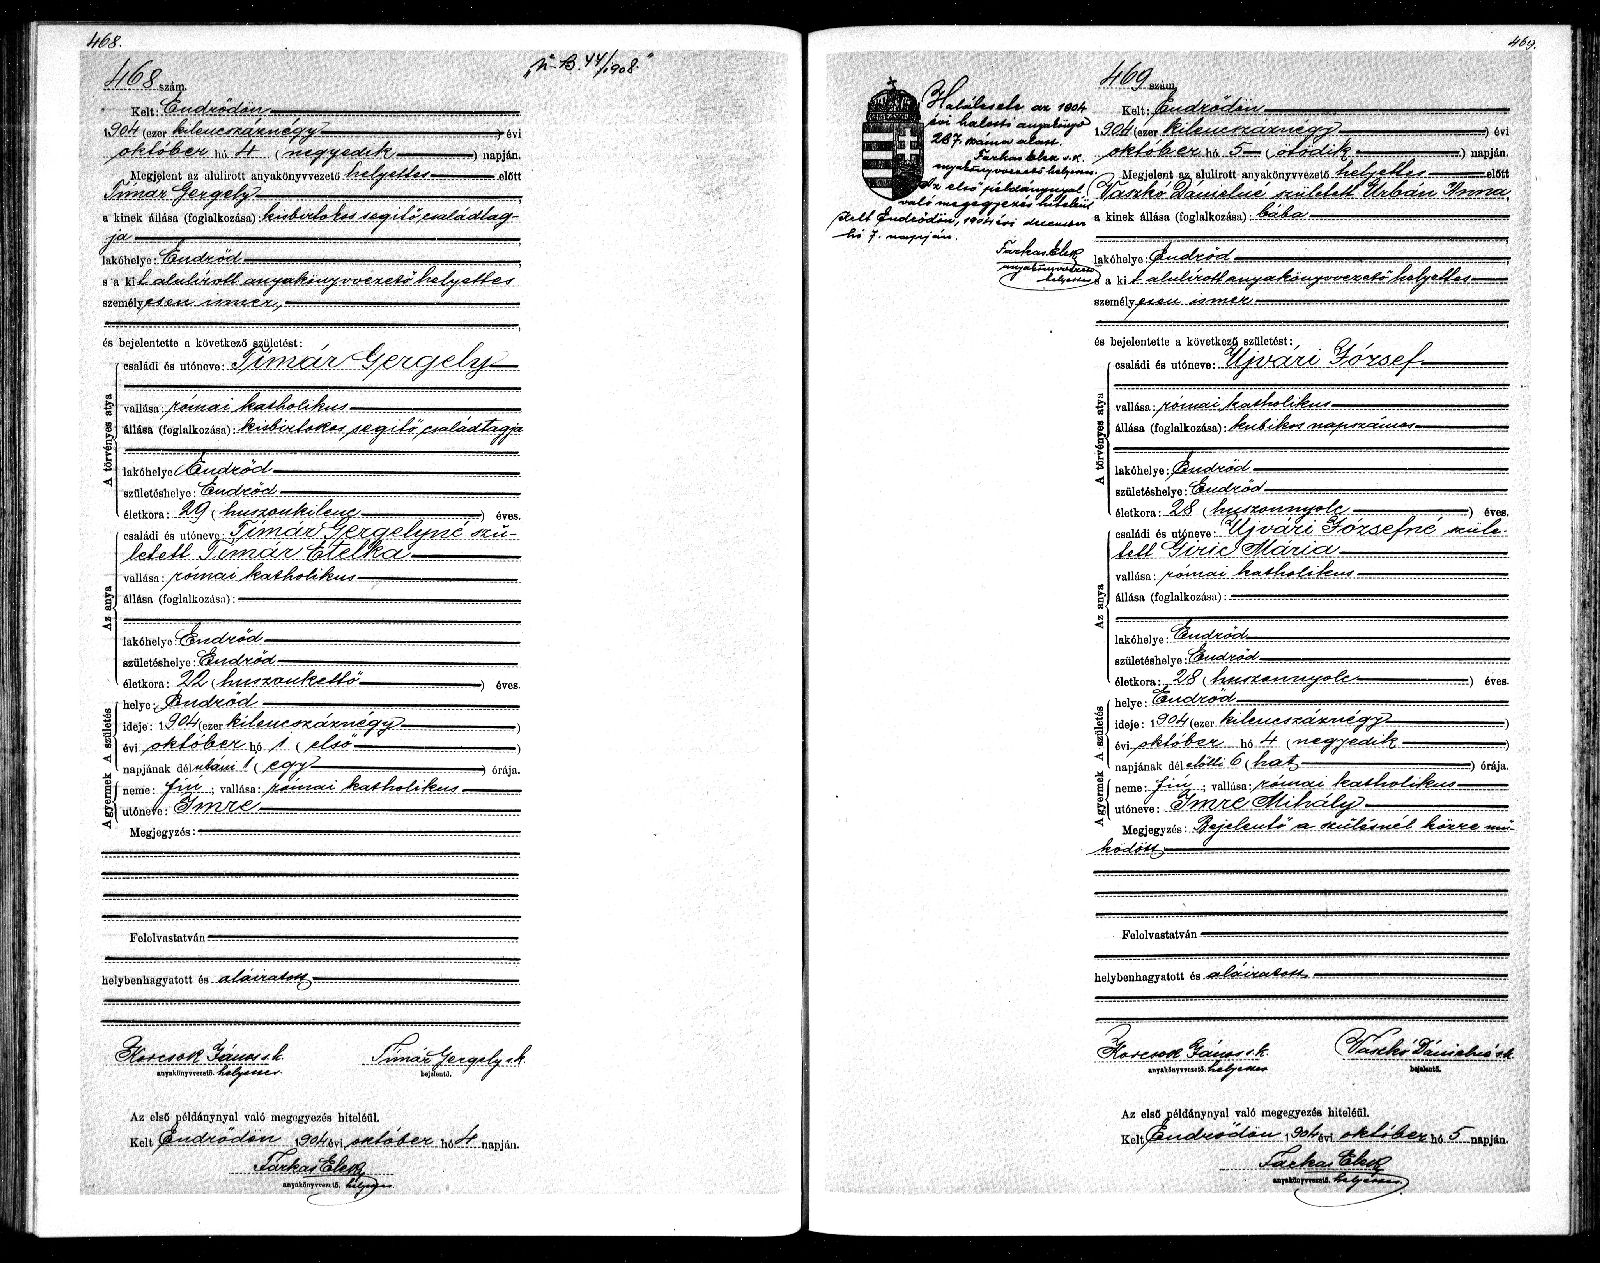 468.
468 szám.
"U-B. 44/1908."
Kelt: Endrődön,
1904 (ezer kilencszáznégy) évi
október hó 4 (negyedik) napján.
Megjelent az alulirott anyakönyvvezető helyettes előtt
Tímár Gergely
a kinek állása (foglalkozása): kisbirtokos segitő családtag-
ja
lakóhelye: Endrőd
s a kit alulírott anyakönyvvezető helyettes
személyesen ismer,
és bejelentette a következő születést:
A törvényes atya
családi és utóneve: Tímár Gergely
vallása: római katholikus
állása (foglalkozása): kisbirtokos segitő családtagja
lakóhelye: Endrőd
születéshelye: Endrőd
életkora: 29 (huszonkilenc) éves.
Az anya
családi és utóneve: Tímár Gergelyné szü-
letett Tímár Etelka
vallása: római katholikus
állása (foglalkozása):
lakóhelye: Endrőd
születéshelye: Endrőd
életkora: 22 (huszonkettő) éves.
A születés
helye: Endrőd
ideje: 1904 (ezer kilencszáznégy)
évi október hó 1 (első)
napjának délutáni 1 (egy) órája.
A gyermek
neme: fiú; vallása: római katholikus
utóneve: Imre
Megjegyzés:
Felolvastatván
helybenhagyatott és aláiratott
Korcsok János s.k. Tímár Gergely s.k.
anyakönyvvezető. helyettes bejelentő.
Az első példánynyal való megegyezés hiteléül.
Kelt Endrődön 1904 évi október hó 4 napján.
Farkas Elek
anyakönyvvezető. helyettes
469.
Halálesete az 1904
évi halotti anyakönyv
287. száma alatt.
Farkas Elek s.k.
anyakönyvvezető helyettes.
Az első példánynyal
való megegyezés hiteléül
Kelt Endrődön, 1904 évi december
hó 7. napján.
Farkas Elek
anyakönyvvezető
helyettes
469 szám.
Kelt: Endrődön
1904 (ezer kilencszáznégy) évi
október hó 5 (ötödik) napján.
Megjelent az alulirott anyakönyvvezető helyettes előtt
Vaszkó Dánielné született Urbán Anna,
a kinek állása (foglalkozása): bába
lakóhelye: Endrőd
s a kit alulírott anyakönyvvezető helyettes
személyesen ismer
és bejelentette a következő születést:
A törvényes atya
családi és utóneve: Ujvári József
vallása: római katholikus
állása (foglalkozása): kubikos napszámos
lakóhelye: Endrőd
születéshelye: Endrőd
életkora: 28 (huszonnyolc) éves.
Az anya
családi és utóneve: Ujvári Józsefné szüle-
tett Giric Mária
vallása: római katholikus
állása (foglalkozása):
lakóhelye: Endrőd
születéshelye: Endrőd
életkora: 28 (huszonnyolc) éves.
A születés
helye: Endrőd
ideje: 1904 (ezer kilencszáznégy)
évi október hó 4 (negyedik)
napjának délelőtti 6 (hat) órája.
A gyermek
neme: fiú; vallása: római katholikus
utóneve: Imre Mihály
Megjegyzés: Bejelentő a szülésnél közre mű-
ködött
Felolvastatván
helybenhagyatott és aláiratott
Korcsok János s.k. Vaszkó Dánielné s.k.
anyakönyvvezető. helyettes bejelentő.
Az első példánynyal való megegyezés hiteléül.
Kelt Endrődön 1904 évi október hó 5 napján.
Farkas Elek
anyakönyvvezető. helyettes